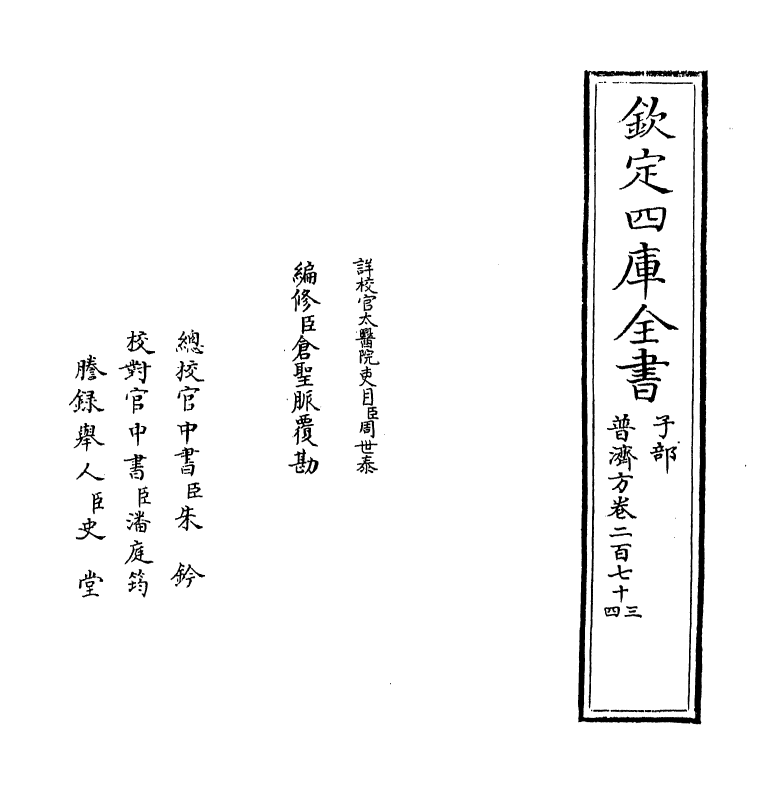 欽定四庫全書
子部
普濟方卷二百七十三四
詳校官太醫院吏目臣周世泰
編修臣倉聖脈覆勘
總校官中書臣朱鈐
校對官中書臣潘庭筠
謄録舉人臣史堂